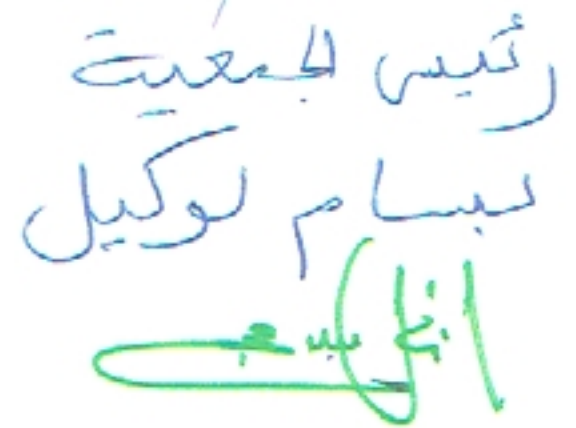 رئيس الجمعية
بسام لوكيل